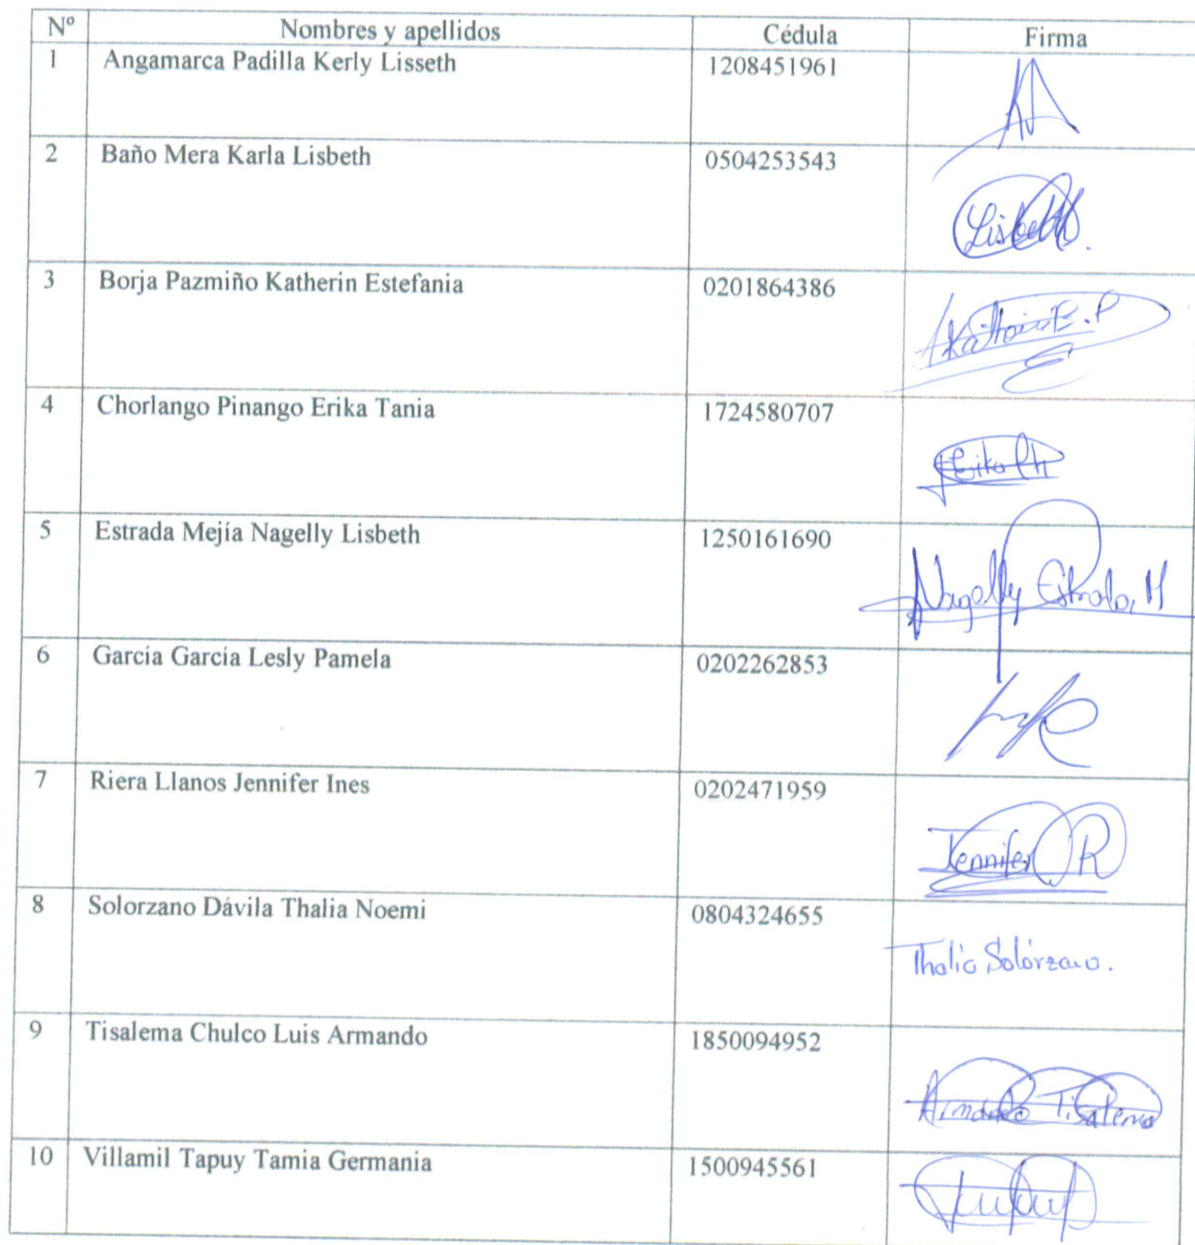 Nº Nombres y apellidos Cédula Firma
1 Angamarca Padilla Kerly Lisseth 1208451961
2 Baño Mera Karla Lisbeth 0504253543
Lisbeth
3 Borja Pazmiño Katherin Estefania 0201864386
B.P
4 Chorlango Pinango Erika Tania 1724580707
Erika Ch
5 Estrada Mejía Nagelly Lisbeth 1250161690
Nagelly Estrada M
6 García García Lesly Pamela 0202262853
7 Riera Llanos Jennifer Ines 0202471959
Jennifer R
8 Solorzano Dávila Thalia Noemi 0804324655
Thalia Solórzano.
9 Tisalema Chulco Luis Armando 1850094952
Armando Tisalema
10 Villamil Tapuy Tamia Germania 1500945561